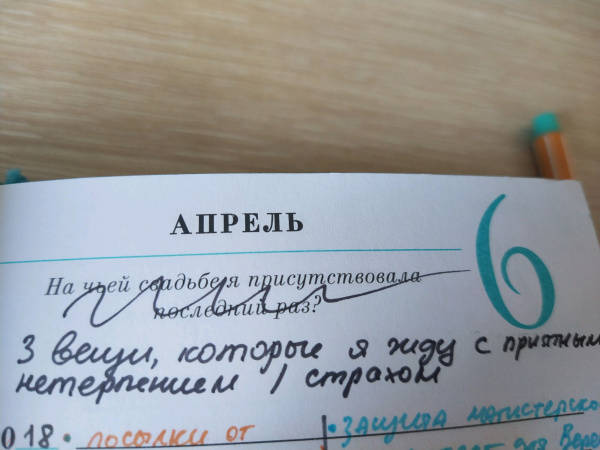 АПРЕЛЬ
6
На чьей свадьбе я присутствовала
последний раз?
3 вещи, которые я жду с приятным
нетерпением / страхом
018 • посылки от
• защита магистерско
для Вере